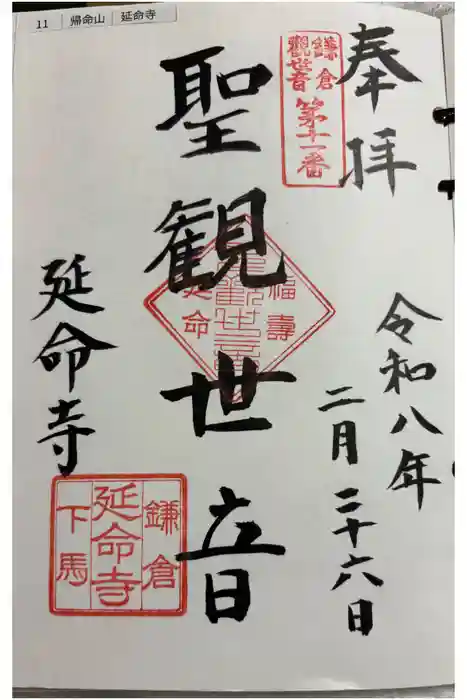 11 帰命山 延命寺
奉拝
令和八年
二月二十六日
鎌倉
観世音
第十一番
聖観世音
福壽
延命
延命寺
鎌倉
延命寺
下馬